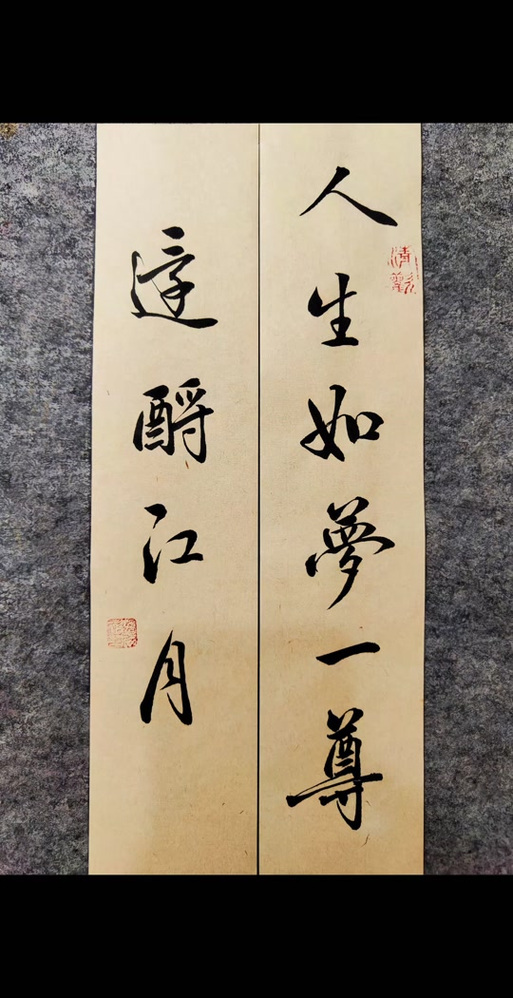 清歡
人生如夢一尊
還酹江月